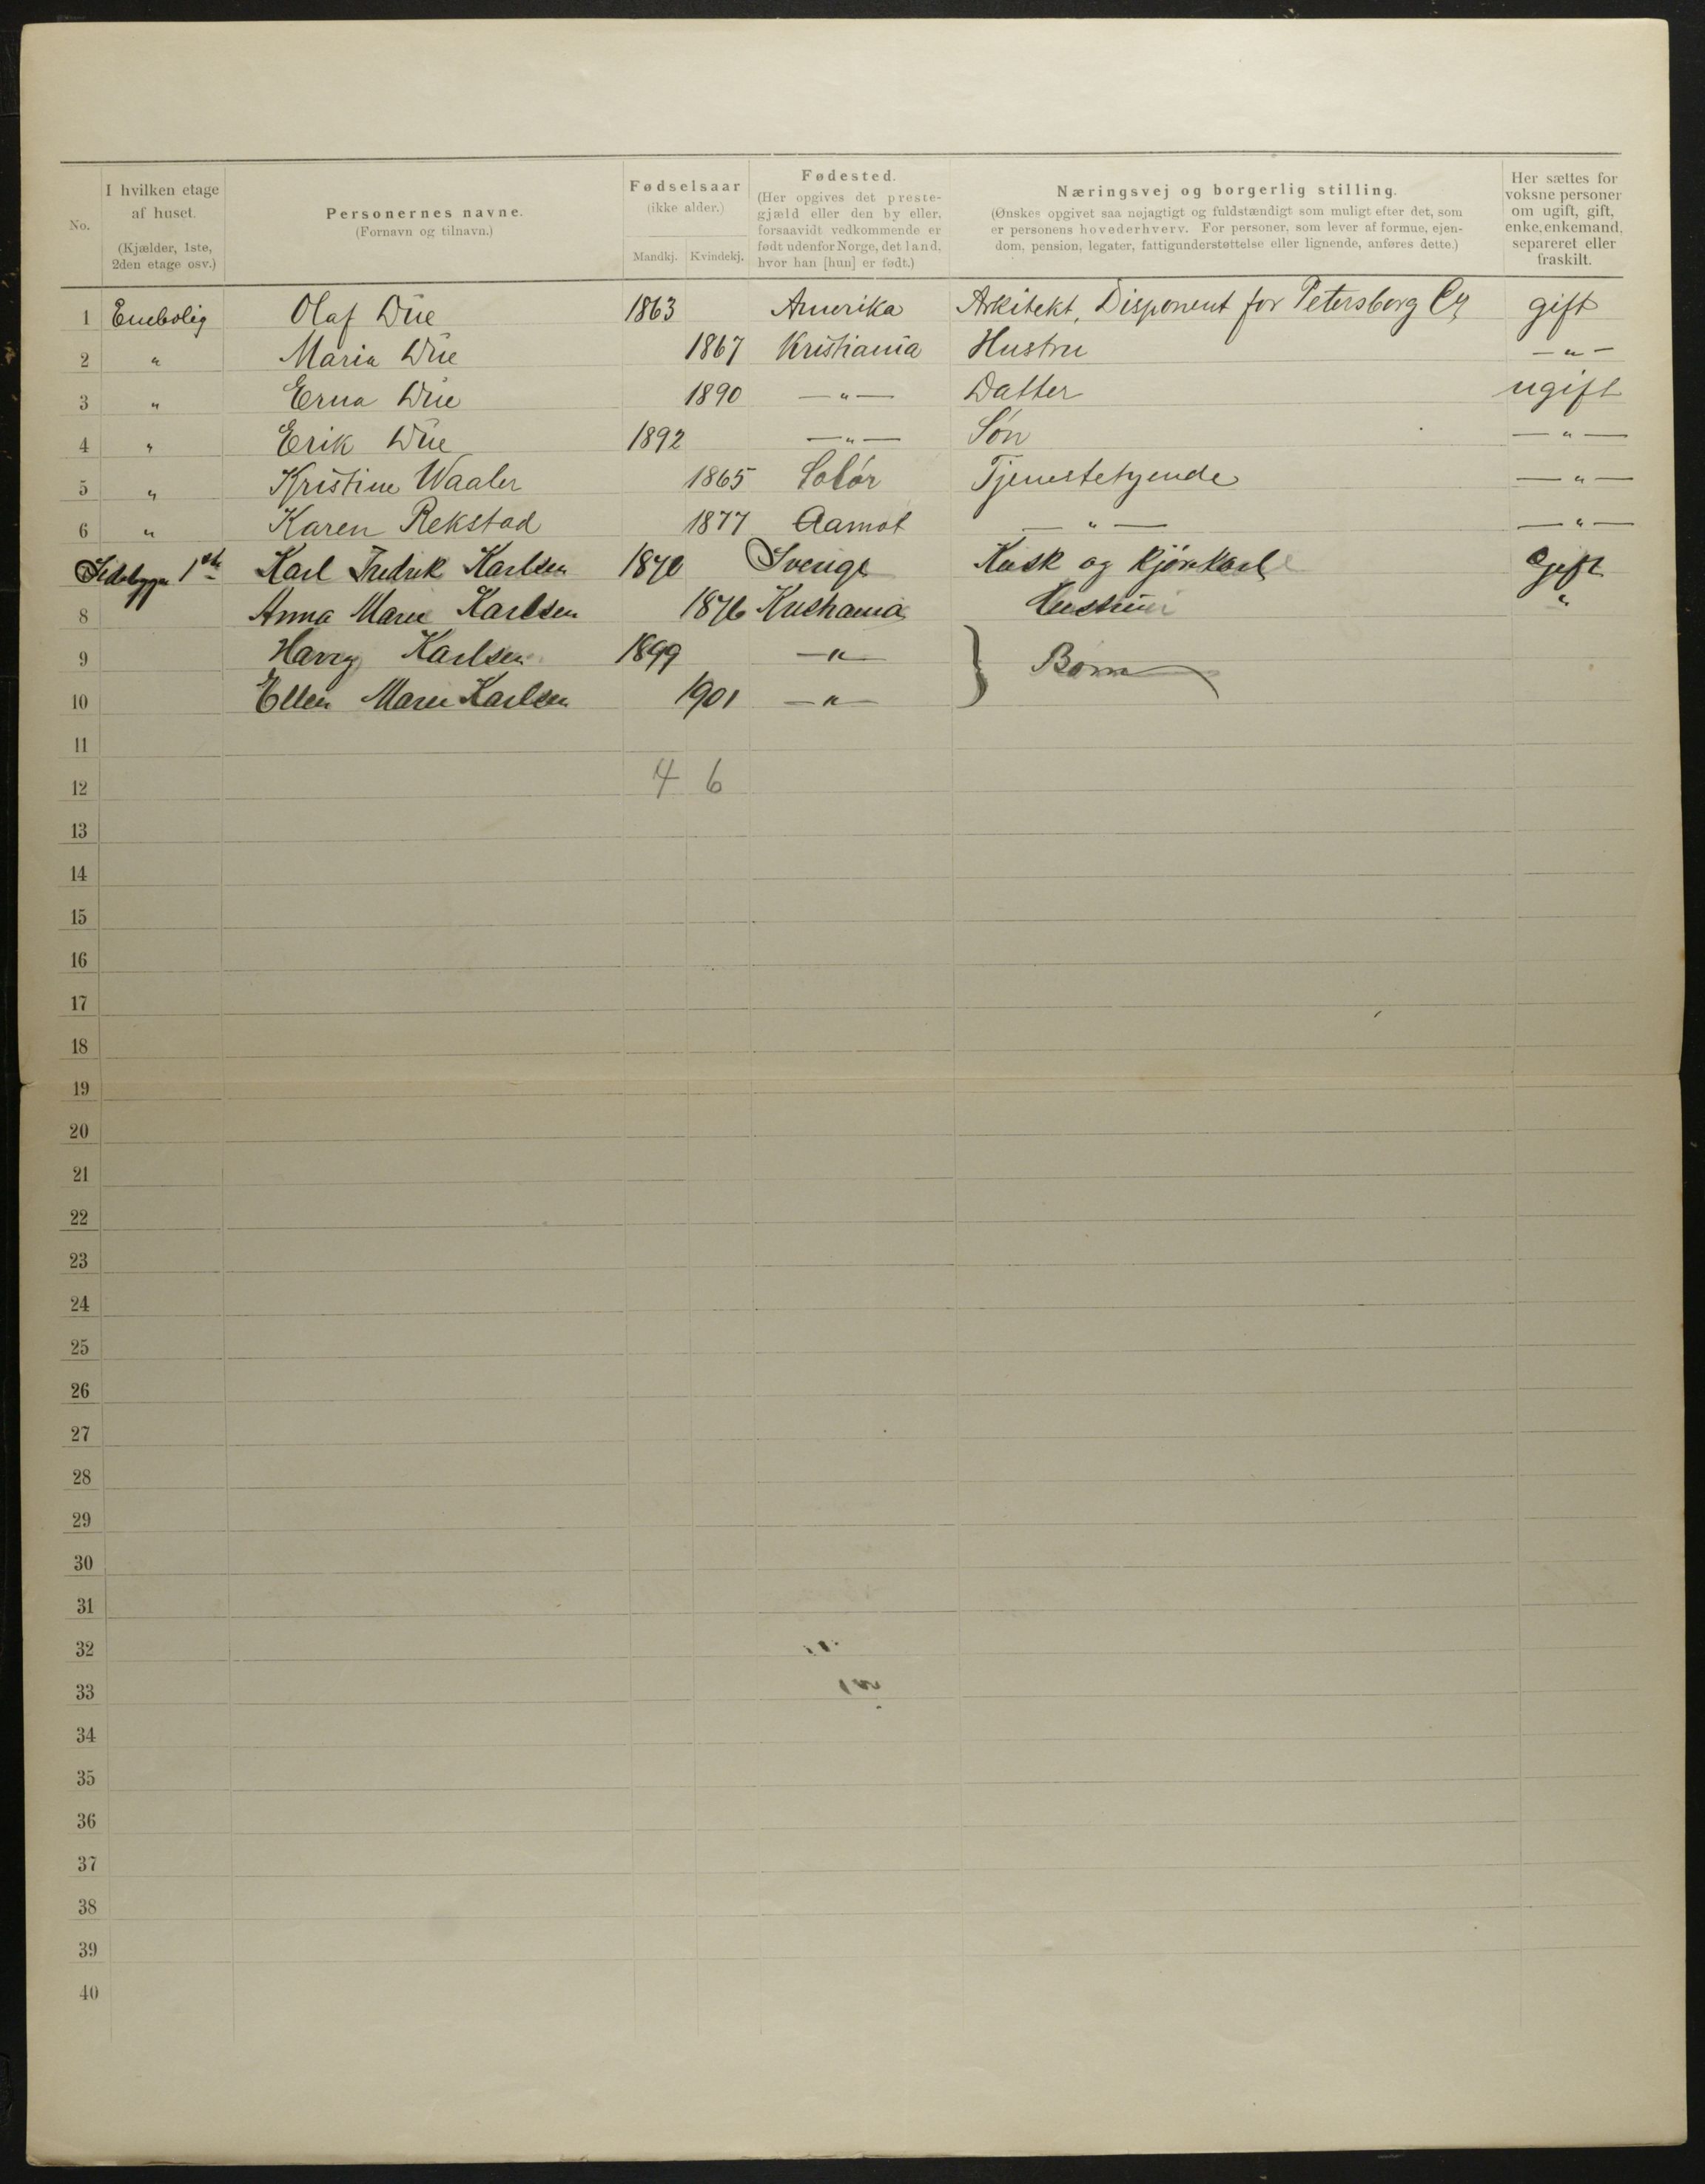 No.
I hvilken etage af huset.
(Kjælder, 1ste, 2den etage osv.)
Personernes navne.
(Fornavn og tilnavn.)
Fødselsaar
(ikke alder.)
Mandkj. Kvindekj.
Fødested.
(Her opgives det prestegjæld eller den by eller, forsaavidt vedkommende er født udenfor Norge, det land, hvor han [hun] er født.)
Næringsvej og borgerlig stilling.
(Ønskes opgivet saa nøjagtigt og fuldstændigt som muligt efter det, som er personens hovederhverv. For personer, som lever af formue, ejendom, pension, legater, fattigunderstøttelse eller lignende, anføres dette.)
Her sættes for voksne personer om ugift, gift, enke, enkemand, separeret eller fraskilt.
1 Enebolig Olaf Due 1863 Amerika Arkitekt, Disponent for Petersborg Cy gift
2 " Maria Due 1867 Kristiania Hustru — " —
3 " Erna Due 1890 — " — Datter ugift
4 " Erik Due 1892 — " — Søn — " —
5 " Kristine Waaler 1865 Solør Tjenestetyende — " —
6 " Karen Rekstad 1877 Aamot — " — — " —
1ste Karl Fredrik Karlsen 1870 Sverige Kusk og Kjørekarl gift
8 Anna Marie Karlsen 1876 Kristiania Hustru "
9 Harry Karlsen 1899 — " — } Børn
10 Ellen Marie Karlsen 1901 — " —
11
12 4 6
13
14
15
16
17
18
19
20
21
22
23
24
25
26
27
28
29
30
31
32
33
34
35
36
37
38
39
40